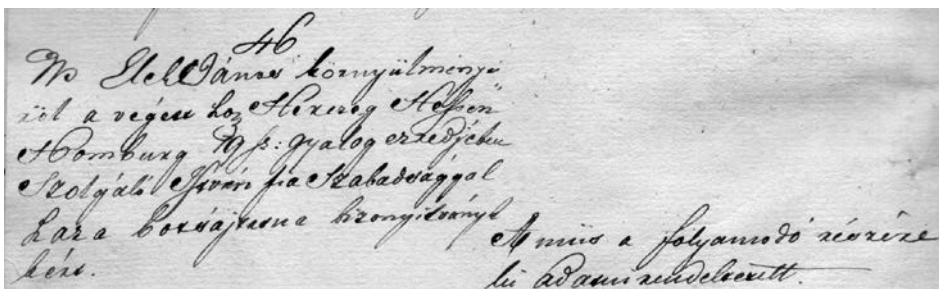 46
Ns Elek János környülményi
ről a végett hoz Herczeg Hessen
Homburg 19 sz: gyalog ezredjében
Szolgáló István fia Szabadsággal
haza bocsájtasna bizonyitványt
kére.
A miis a folyamodó részére
ki adami rendeltetett.